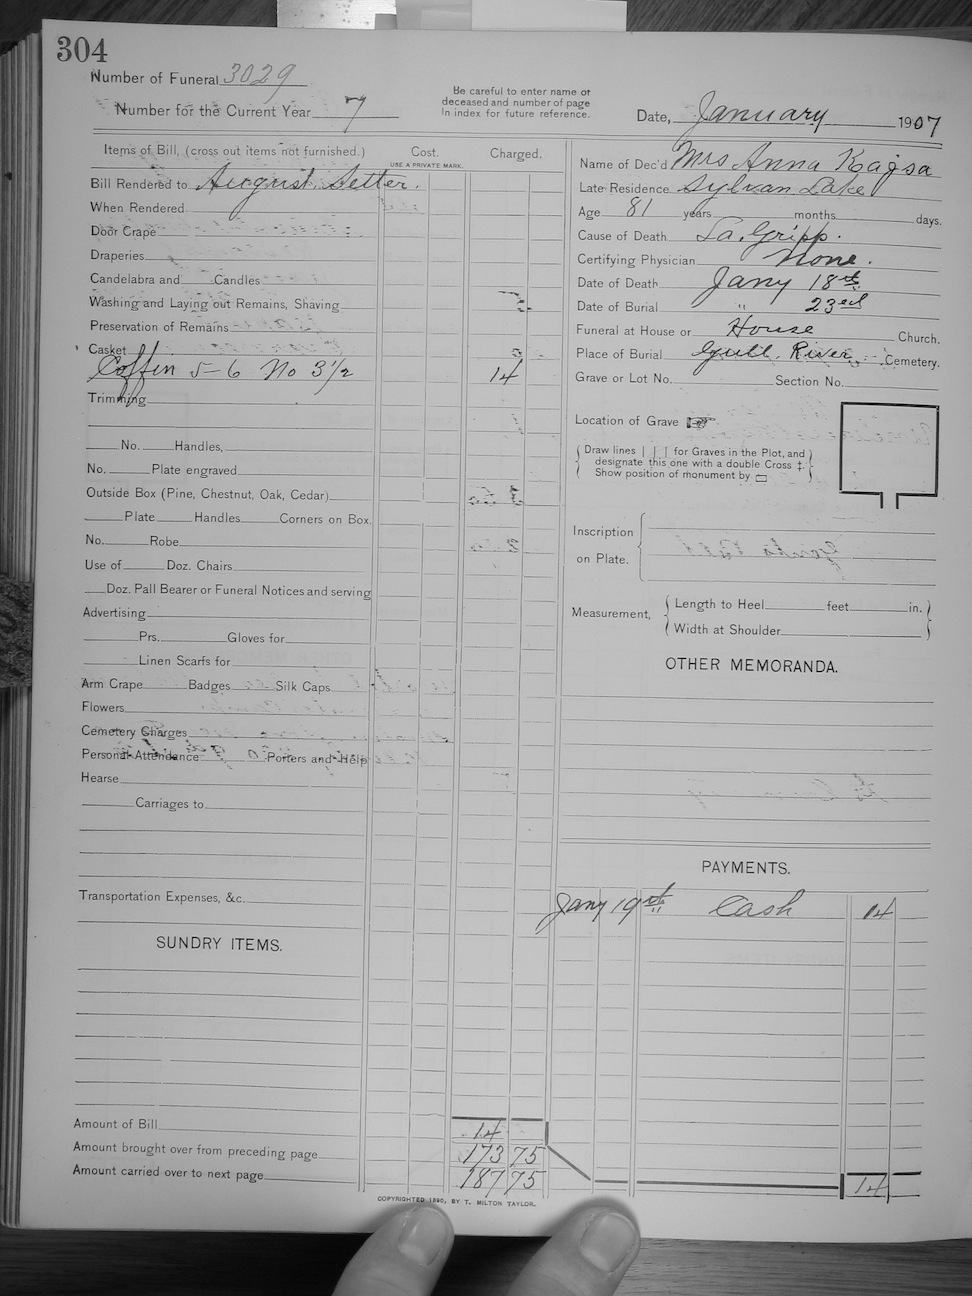 304
Number of Funeral 3029
Number for the Current Year 7
Be careful to enter name of
deceased and number of page
In index for future reference.
Date, January 1907
Items of Bill, (cross out items not furnished.) Cost. Charged.
USE A PRIVATE MARK.
Bill Rendered to August Setter.
When Rendered
Door Crape
Draperies
Candelabra and Candles
Washing and Laying out Remains, Shaving
Preservation of Remains
Casket
Coffin 5-6 No 3½ 14
Trimming
No. Handles,
No. Plate engraved
Outside Box (Pine, Chestnut, Oak, Cedar)
Plate Handles Corners on Box.
No. Robe
Use of Doz. Chairs
Doz. Pall Bearer or Funeral Notices and serving
Advertising
Prs. Gloves for
Linen Scarfs for
Arm Crape Badges Silk Caps
Flowers
Cemetery Charges
Personal Attendance Porters and Help
Hearse
Carriages to
Transportation Expenses, &c.
SUNDRY ITEMS.
Amount of Bill 14
Amount brought over from preceding page 173 75
Amount carried over to next page 187 75
Name of Dec'd Mrs Anna Kajsa
Late Residence Sylvan Lake
Age 81 years months days.
Cause of Death La Gripp.
Certifying Physician None.
Date of Death Jany 18th
Date of Burial " 23ed
Funeral at House or House Church.
Place of Burial Gull River Cemetery.
Grave or Lot No. Section No.
Location of Grave
Draw lines | | | for Graves in the Plot, and
designate this one with a double Cross ‡.
Show position of monument by ▭
Inscription
on Plate.
Measurement, Length to Heel feet in.
Width at Shoulder
OTHER MEMORANDA.
PAYMENTS.
Jany 19th Cash 14
14
COPYRIGHTED 1890, BY T. MILTON TAYLOR.